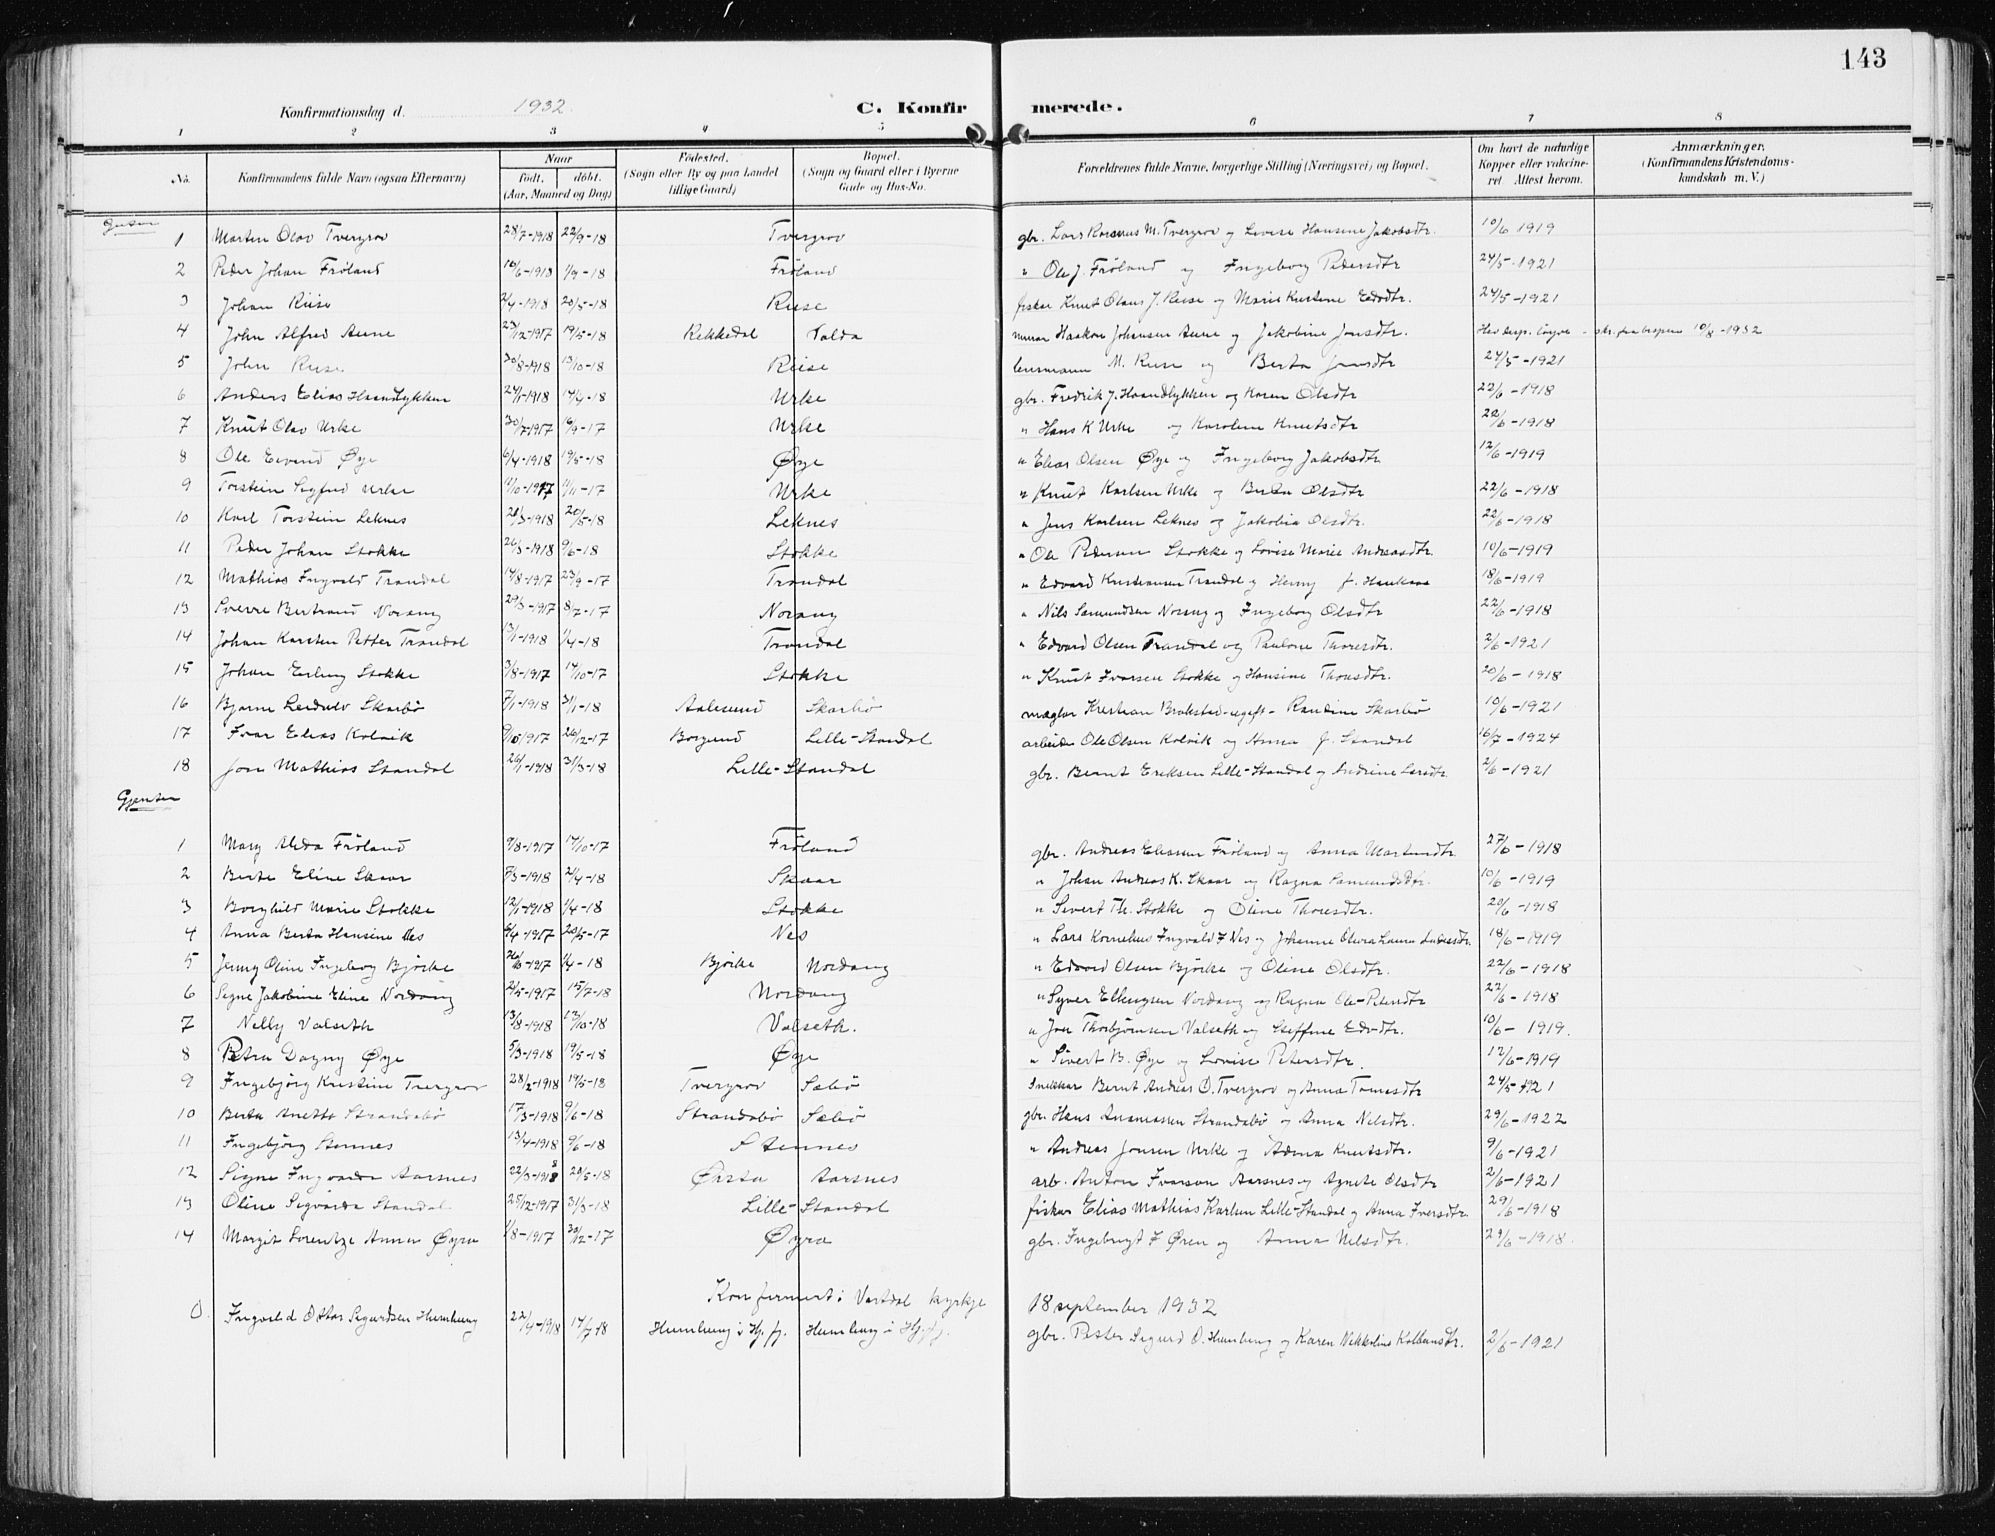 143
Konfirmationsdag d. 1932. C. Konfirmerede.
1 2 3 4 5 6 7 8
No. Konfirmandens fulde Navn (ogsaa Efternavn) Naar født. døbt. (Aar, Maaned og Dag) Fødested. (Sogn eller By og paa Landet tillige Gaard) Bopæl. (Sogn og Gaard eller i Byerne Gade og Hus-No. Forældrenes fulde Navne, borgerlige Stilling (Næringsvei) og Bopæl. Om havt de naturlige Kopper eller vakcineret. Attest herom. Anmærkninger, (Konfirmandens Kristendomskundskab m. V.)
Guter
1 Martin Olav Tvergrov 28/7-1918 22/9-18 Tvergrov gbr. Lars Rasmus M. Tvergrov og Lovise Hansine Jakobsdtr. 10/6 1919
2 Peder Johan Frøland 16/6-1918 1/9-18 Frøland " Ole J. Frøland og Ingeborg Pedersdtr 24/5-1921
3 Johan Riise 2/4-1918 20/5-18 Riise fiskar Knut Olaus J. Riise og Marie Kristine Edvdtr. 24/5-1921
4 John Alfred Aune 23/12-1917 19/5-18 Rekkedal Volda murar Haakon Johansen Aune og Jakobine Jonsdtr. 10/8-1932
5 John Riise 30/8-1918 13/10-18 Riise lensmann M. Riise og Berta Jonsdtr 24/5-1921
6 Anders Elias Haandlykken 24/1-1918 14/4-18 Urke gbr. Fredrik J. Haandlykken og Karen Olsdtr 22/6-1918
7 Knut Olav Urke 30/7-1917 16/9-17 Urke " Hans K Urke og Karoline Knutsdtr 22/6-1918
8 Ole Eivind Øye 6/4-1918 19/5-18 Øye " Elias Olsen Øye og Ingeborg Jakobsdtr 12/6-1919
9 Torstein Sigfred Urke 11/10-1917 11/11-17 Urke " Knut Karlsen Urke og Berta Olsdtr 22/6-1918
10 Karl Torstein Leknes 20/3-1918 20/5-18 Leknes " Jens Karlsen Leknes og Jakobia Olsdtr. 22/6-1918
11 Peder Johan Stokke 26/3-1918 9/6-18 Stokke " Ole Pedersen Stokke og Lovise Marie Andreasdtr. 10/6-1919
12 Mathias Ingvald Trandal 14/8-1917 23/9-17 Trandal " Edvard Kristiansen Trandal og Henny f. Hauknes 18/6-1919
13 Sverre Bertrand Norang 29/3-1917 8/7-17 Norang " Nils Samundsen Norang og Ingeborg Olsdtr 22/6-1918
14 Johan Karsten Petter Trandal 13/1-1918 1/4-18 Trandal " Edvard Olsen Trandal og Pauline Thoresdtr. 2/6-1921
15 Johan Erling Stokke 3/8-1917 14/10-17 Stokke " Knut Ivarsen Stokke og Hansine Thoresdtr. 20/6-1918
16 Bjarne Leidulv Skarbø 7/1-1918 31/1-18 Aalesund Skarbø mæglar Kristian Brakstad-ugift- Randine Skarbø 10/6-1921
17 Ivar Elias Kolvik 9/10 1917 26/12-17 Borgund Lille-Standal arbeider Ole Olsen Kolvik og Anna f. Standal 16/7-1924
18 Jon Mathias Standal 26/1-1918 31/3-18 Lille-Standal gbr. Bernt Eriksen Lille-Standal og Andrine Larsdtr. 2/6-1921
Gjenter
1 Mary Alida Frøland 9/8-1917 14/10-17 Frøland gbr. Andreas Eliassen Frøland og Anna Martinsdtr. 27/6-1918
2 Berte Eline Skaar 7/3-1918 21/4-18 Skaar " Johan Andreas K. Skaar og Ragna Samundsdtr. 10/6-1919
3 Borghild Marie Stokke 12/1-1918 1/4-18 Stokke " Sivert Th. Stokke og Oline Thoresdtr. 20/6-1918
4 Anna Berta Hansine Nes 5/4-1917 20/5-17 Nes " Lars Kornelius Ingvald J Nes og Johanne Olivia Laura 18/6-1919
5 Jenny Oline Ingeborg Bjørke 26/6-1917 1/4-18 Bjørke Nordang " Edvard Olsen Bjørke og Oline Olsdtr. 22/6-1918
6 Signe Jakobine Eline Nordang 21/5-1917 15/7-18 Nordang " Syver Ellingsen Nordang og Ragna Ole-Petersdtr 22/6-1918
7 Nelly Valseth 13/8-1918 13/10-18 Valseth. " Jon Thorbjørnsen Valseth og Steffine Edvdtr. 10/6-1919.
8 Petra Dagny Øye 5/3-1918 19/5-18 Øye " Sivert B. Øye og Lovise Petersdtr. 12/6-1919
9 Ingebjørg Kristine Tvergrov 28/2-1918 19/5-18 Tvergrov Sæbø Snekkar Bernt Andreas O. Tvergrov og Anna Tomasdtr 24/5-1921
10 Berta Anetta Strandabø 17/3-1918 9/6-18 Strandabø Sæbø gbr. Hans Rasmussen Strandabø og Anna Nilsdtr. 29/6-1922
11 Ingebjørg Stennes 13/4-1918 9/6-18 Stennes " Andreas Jonsen Urke og Adina Knutsdtr. 9/6-1921
12 Signe Ingvarda Aarsnes 22/3-1918 20/5-18 Ørsta Aarsnes arb. Anton Ivarson Aarsnes og Agnete Olsdtr 2/6-1921
13 Oline Sigvarda Standal 25/12-1917 31/3-18 Lille-Standal fiskar Elias Mathias Karlsen Lille-Standal og Anna Iversdtr. 29/6-1918
14 Margit Lorentze Anna Øyra 1/8-1917 30/12-17 Øyra gbr. Ingebrigt I Øren og Anna Nilsdtr. 29/6-1918.
Konfirmert i Vartdal kyrkje 18 september 1932
O. Ingvald Ottar Sigurdsen Humlung 22/4-1918 14/7-18 Humlung i Hj.fj. Humlung i Hj.fj. gbr. Peter Sigurd O. Humlung og Karen Nikoline Kolbensdtr. 2/6-1921